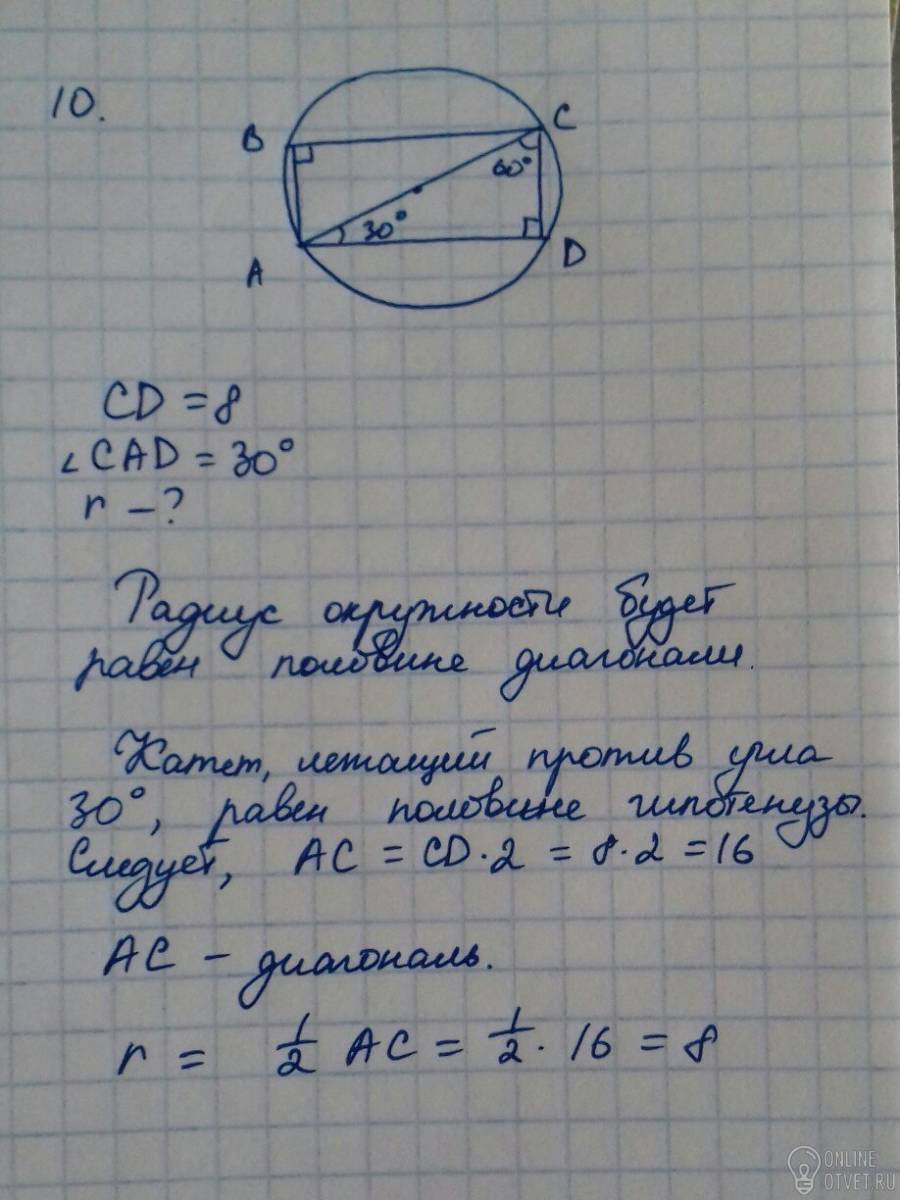 10.
B
C
60°
30°
A
D
CD = 8
∠CAD = 30°
r – ?
Радиус окружности будет
равен половине диагонали.
Катет, лежащий против угла
30°, равен половине гипотенузы.
Следует, AC = CD · 2 = 8 · 2 = 16
AC – диагональ.
r = 1/2 AC = 1/2 · 16 = 8
ONLINE
OTVET.RU